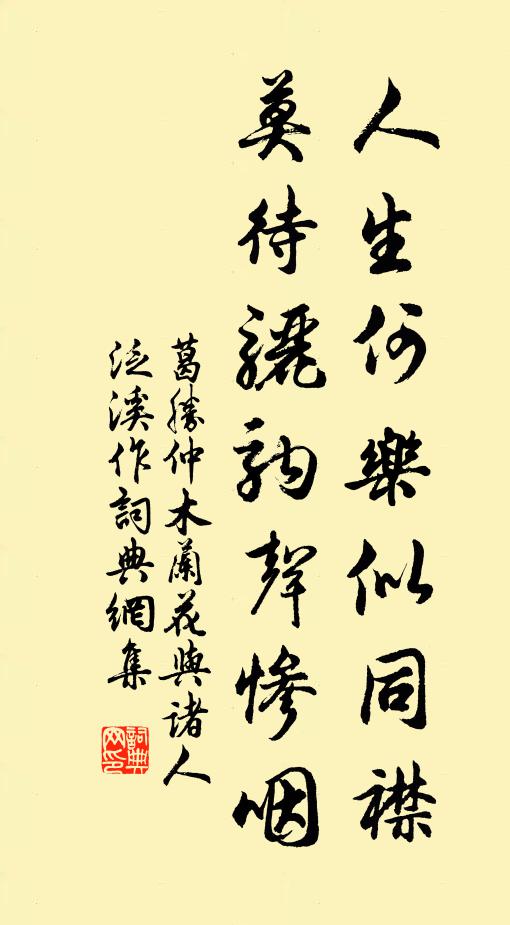 人生何樂似同襟
莫待驪駒聲慘咽
葛勝仲木蘭花與諸人
泛溪作詞典網集
詞典網印